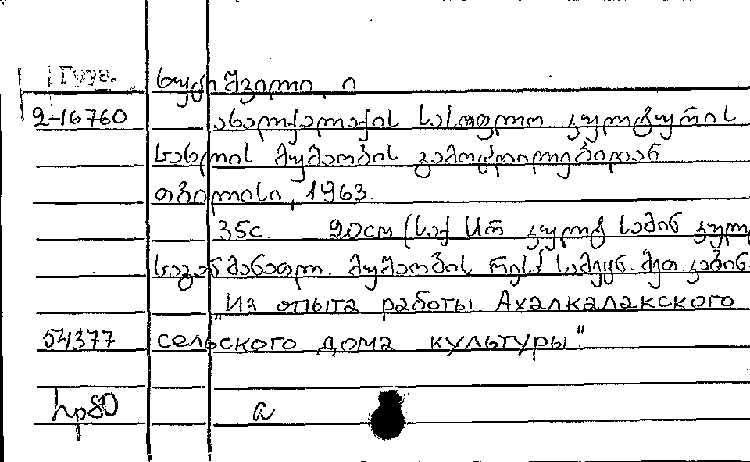 Груз.
2-16760
ახალქალაქის სასოფლო კულტურის
სახლის მუშაობის გამოცდილებიდან
თბილისი, 1963.
35с. 20см (საქ სსრ კულტ სამინ კულტ
საგანმანათლ. მუშაობის რესპ სამეცნ. მეთ კაბინ
„Из опыта работы Ахалкалакского
54377 сельского дома культуры"
а